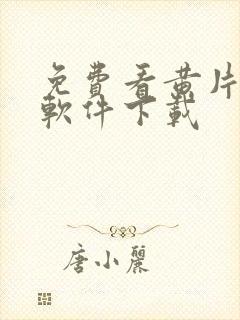 免費看黃片
軟件下載
唐小麗